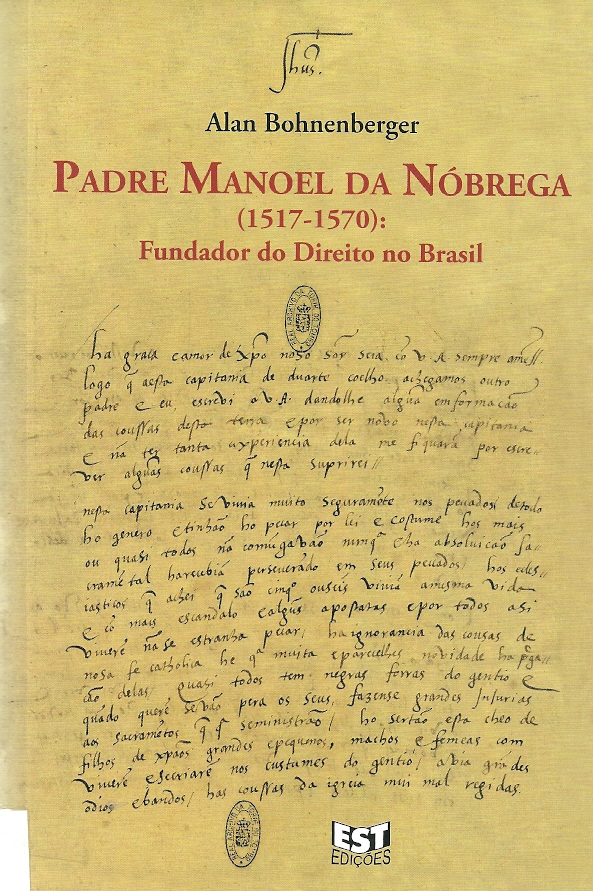 Jhus.
Alan Bohnenberger
PADRE MANOEL DA NÓBREGA
(1517-1570):
Fundador do Direito no Brasil
REAL ARCHIVO DA TORRE DO TOMBO
ha graça e amor de xpo noso sõr seia cõ v. A sempre amẽ//
logo q̃ a esta capitania de duarte coelho achegamos outro
padre e eu, escrevi a v A. dandolhe algũa emformação
das coussas desta terra e por ser novo nesta capitania
e nã ter tanta experiencia dela me fiquará por escre-
ver algũas coussas q̃ nesta suprirei//
nesta capitania se vivia muito seguramẽte nos pecados de todo
ho genero e tinhão ho pecar por lei e costume hos mais
ou quasi todos nã comũgavão nunq̃ e ha absolvicão sa-
cramẽtal ha recebiã perseverado em seus pecados/ hos ecles-
iasticos q̃ achei q̃ são cinq̃ ou seis viviã a mesma vida
e cõ mais escandalo e algũs apostatas e por todos asi
viverẽ nã se estranha pecar/ ha ignorancia das cousas de
nosa fe catholica he q̃ muita e novidade ha prega-
cão delas, quasi todos tem negras forras do gentio e
quãdo querẽ se vão pera os seus, fazense grandes injurias
aos sacramẽtos q̃ q̃ se ministrão/ ho sertão esta cheo de
filhos de xpãos grandes e pequenos, machos e femeas com
viverẽ e se criarẽ nos custumes do gentio/ avia grãdes
odios e bandos/ has coussas da igreia mui mal regidas.
REAL ARCHIVO DA TORRE DO TOMBO
EST
EDIÇÕES